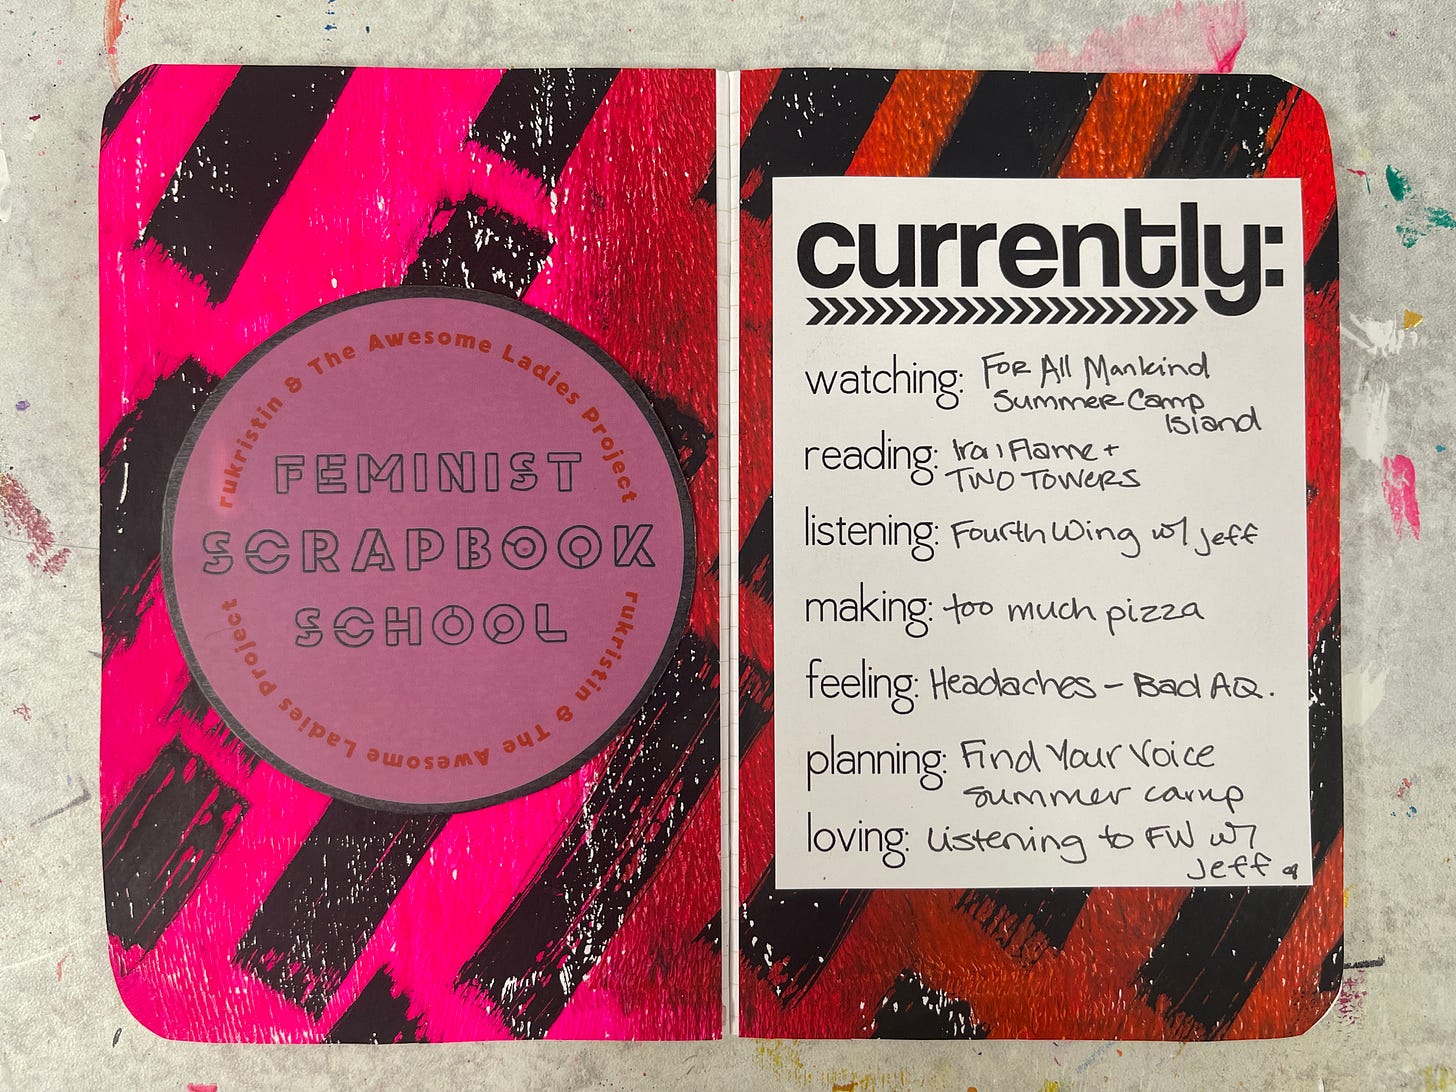 rukristin & The Awesome Ladies Project
FEMINIST
SCRAPBOOK
SCHOOL
rukristin & The Awesome Ladies Project
currently:
watching: For All Mankind
Summer Camp
Island
reading: Flame +
TWO TOWERS
listening: Fourth Wing w/ Jeff
making: too much pizza
feeling: Headaches - Bad AQ.
planning: Find Your Voice
summer camp
loving: Listening to FW w/
Jeff